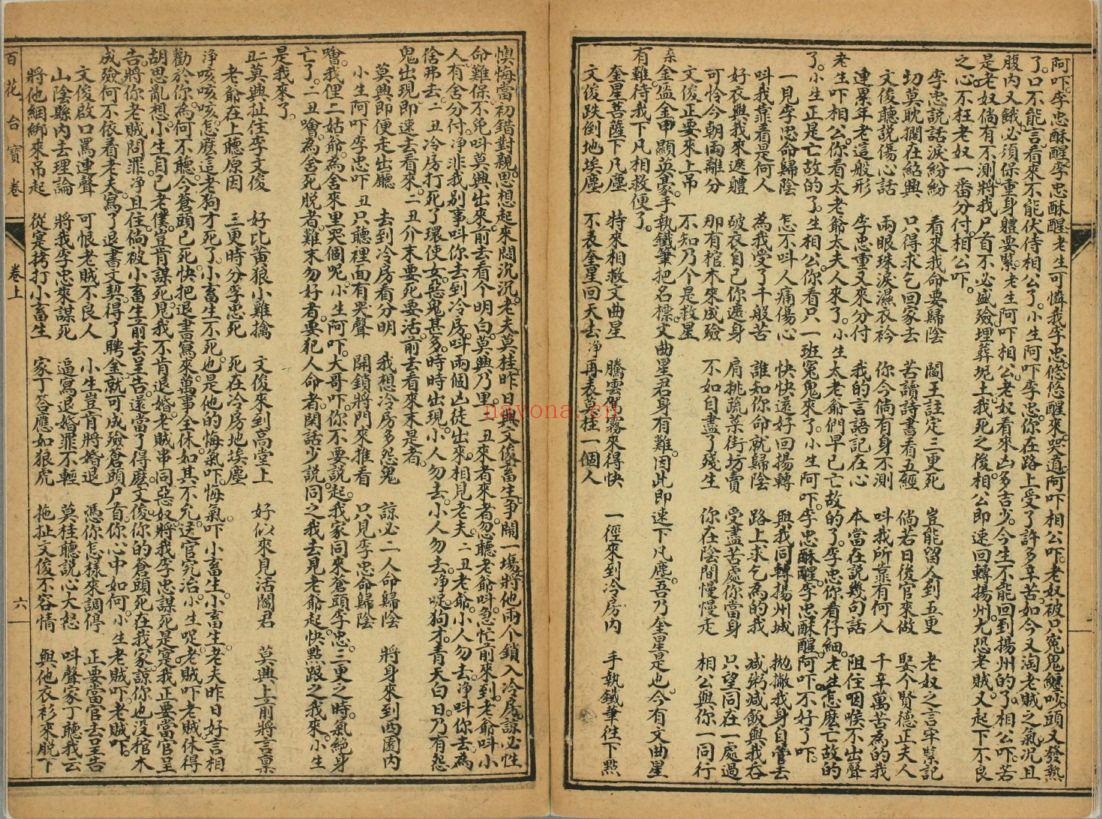 阿吓李忠酥醒李忠酥醒老生可憐我李忠悠悠醒來哭道阿吓相公吓老奴被只寃鬼纏吵頭又發熱
了口不能言看來不能伏待相公了小生阿吓李忠你在路上受了許多辛苦如今又淘老賊之氣况且
股内又餓必須保重身體要緊老生阿吓相公老奴看來凶多吉少今生不能回到揚州的了相公吓若
是老奴倘有不測將我尸首不必盛殮埋葬坭土我死之後相公即速回轉揚州尤恐老賊又起下不良
之心不枉老奴一番分付相公吓
李忠說話淚紛紛 看來我命要歸陰 閻王註定三更死 豈能留人到五更
切莫耽擱在紹興 只得求乞回家去 苦讀詩書看五經 倘若日後官來做 老奴之言牢緊記
文俊聽說傷心話 兩眼珠淚濕衣衿 你今倘有身不測 呌我所靠有何人 娶个賢德正夫人
連累年老這般形 李忠重又來分付 我的言語記在心 本當在說幾句話 千辛萬苦為的我
老生吓相公你看太老爺太夫人來了小生太老爺們早已亡故的了李忠你看仔細老生怎麽亡故的 阻住咽喉不出聲
了小生正是亡故的了生相公你看只一班寃鬼來了小生阿吓李忠酥醒李忠酥醒阿吓不好了吓
一見李忠命歸陰 怎不呌人痛傷心 快快還好回揚轉 與我同轉揚州城 拋撇我身自管去
呌我靠着是何人 為我受了千般苦 誰知你命就歸陰 路上求乞為的我 减粥减飯與我吞
好衣與我來遮體 破衣自己你遍身 肩挑蔬菜街坊賣 受盡苦處你當身 只望同在一處過
可怜今朝兩離分 那有棺木來盛殮 不如自盡了殘生 你在陰間慢慢走 相公與你一同行
文俊正要來上吊 不知乃个是救星
亲金盔金甲顯英豪手執鐵筆把名標文曲星君身有難因此即速下凡塵吾乃奎星是也今有文曲星
有難待我下凡相救便了
奎星菩薩下凡塵 特來相救文曲星 騰雲駕霧來得快 一徑來到冷房内 手執鐵筆往下點
文俊跌倒地埃塵 不表奎星回天去 淨再表莫桂一個人
懊悔當初錯對親思想起來悶沉沉老夫莫桂昨日與文俊畜生爭鬧一塲將他兩个鎖入冷房諒必性
命難保不免呌莫興出來前去看个明白莫興乃里二丑來者來者忽聽老爺呌急忙前來到老爺呌小
人有舍分付淨非我别事呌你去到冷房呌兩個凶徒出來相見老夫二丑老爺小人勿去淨呌你去為
舍弗去二丑冷房打死了環使女惡鬼甚多時時出現小人勿去小人勿去淨唗狗才青天白日乃有怨
鬼出現即速去看來二丑介末要死要活前去看來末是者
莫興即便走出廳 去到冷房看分明 我想冷房多怨鬼 諒必二人命歸陰 將身來到西園内
小生阿吓李忠吓 丑只聽裡面有哭聲 開鎖將門來推看 只見李忠命歸陰
噲我俚二姑爺為舍來里哭個呢小生阿吓大哥吓你不要說起我家同來倉頭李忠三更之之時氣絶身
亡了二丑噲為舍死脱者難末勿好者要犯人命者閑話少說同之我去見老爺起快點跟之我來小生
是我來了
丑莫興扯住李文俊 好比黃狼小雞擒 文俊來到高堂上 好似來見活閻君 莫興上前將言稟
老爺在上聽原因 三更時分李忠死 死在冷房地埃塵
淨咳咳咳怎麽這老狗才死了小畜生不死也是他的悔氣吓悔氣吓小畜生小畜生老夫昨日好言相
勸於你為何不聽今蒼頭已死快把退書寫來萬事全休如其不允送官究治小生呢老賊吓老賊休得
胡思亂想小生自己老僕豈肯謀死見我不肯退婚老賊串同惡奴將我李忠謀死是寔我正要當官呈
告將你老賊問罪淨且住倘被小畜生前去呈告還當了得麽文俊你的倉頭死在我家諒你也没棺木
成殮何不依着老夫寫了退書文契得了聘金就可成殮倉頭尸首你心中如何小生老賊吓老賊吓
文俊啟口罵連聲 可恨老賊不良人 小生豈肯將婚退 憑你怎樣來調停 正要當官去呈告
山陰縣内去理論 將我李忠來謀死 逼寫退婚罪不輕 莫桂聽說心大怒 呌聲家丁聽我云
將他綑綁來吊起 從寔拷打小畜生 家丁答應如狼虎 拖扯文俊不容情 與他衣衫來脱下
百花台寳卷 卷上 六
nayona.cn